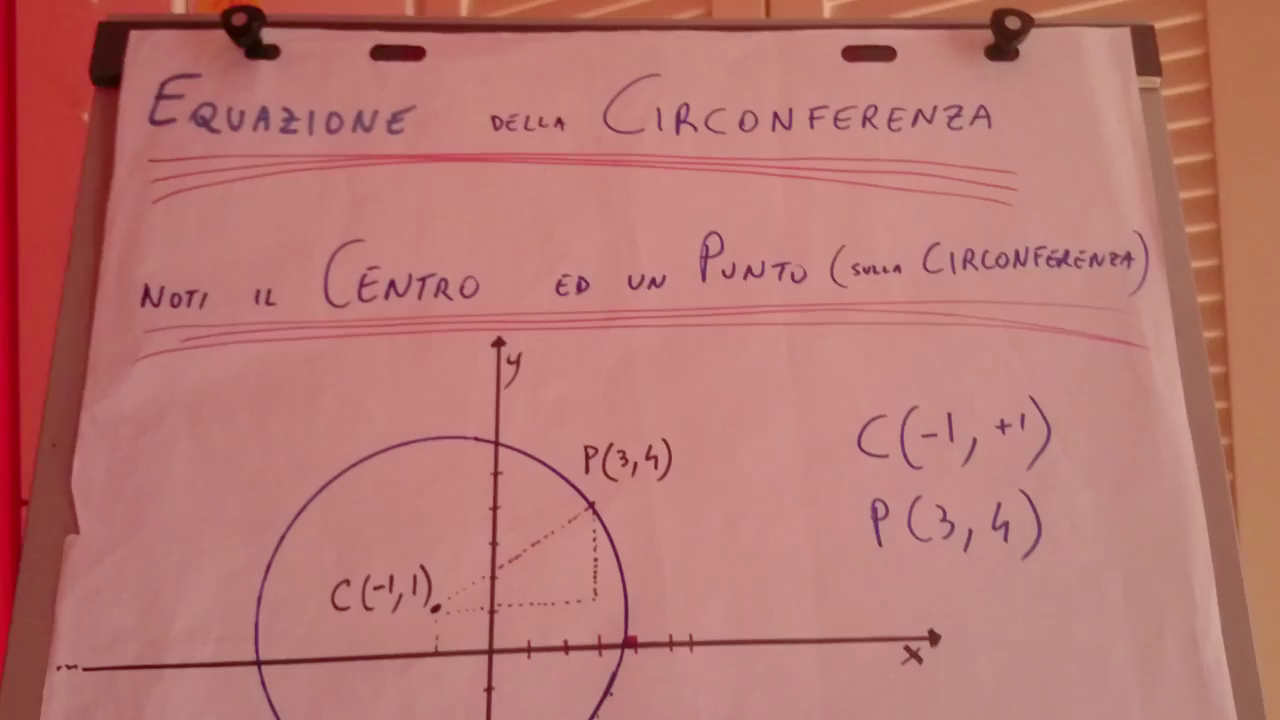 EQUAZIONE DELLA CIRCONFERENZA
NOTI IL CENTRO ED UN PUNTO (SULLA CIRCONFERENZA)
y
C(-1, +1)
P(3,4)
P(3,4)
C(-1,1)
x